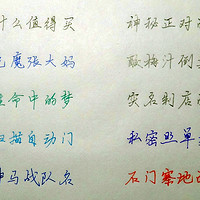 什么值得买
神秘正对
魔張大妈
酸梅汁倒
生命中的梦
实名制店
扫描自动门
私密照单
神马战队名
石门寨地